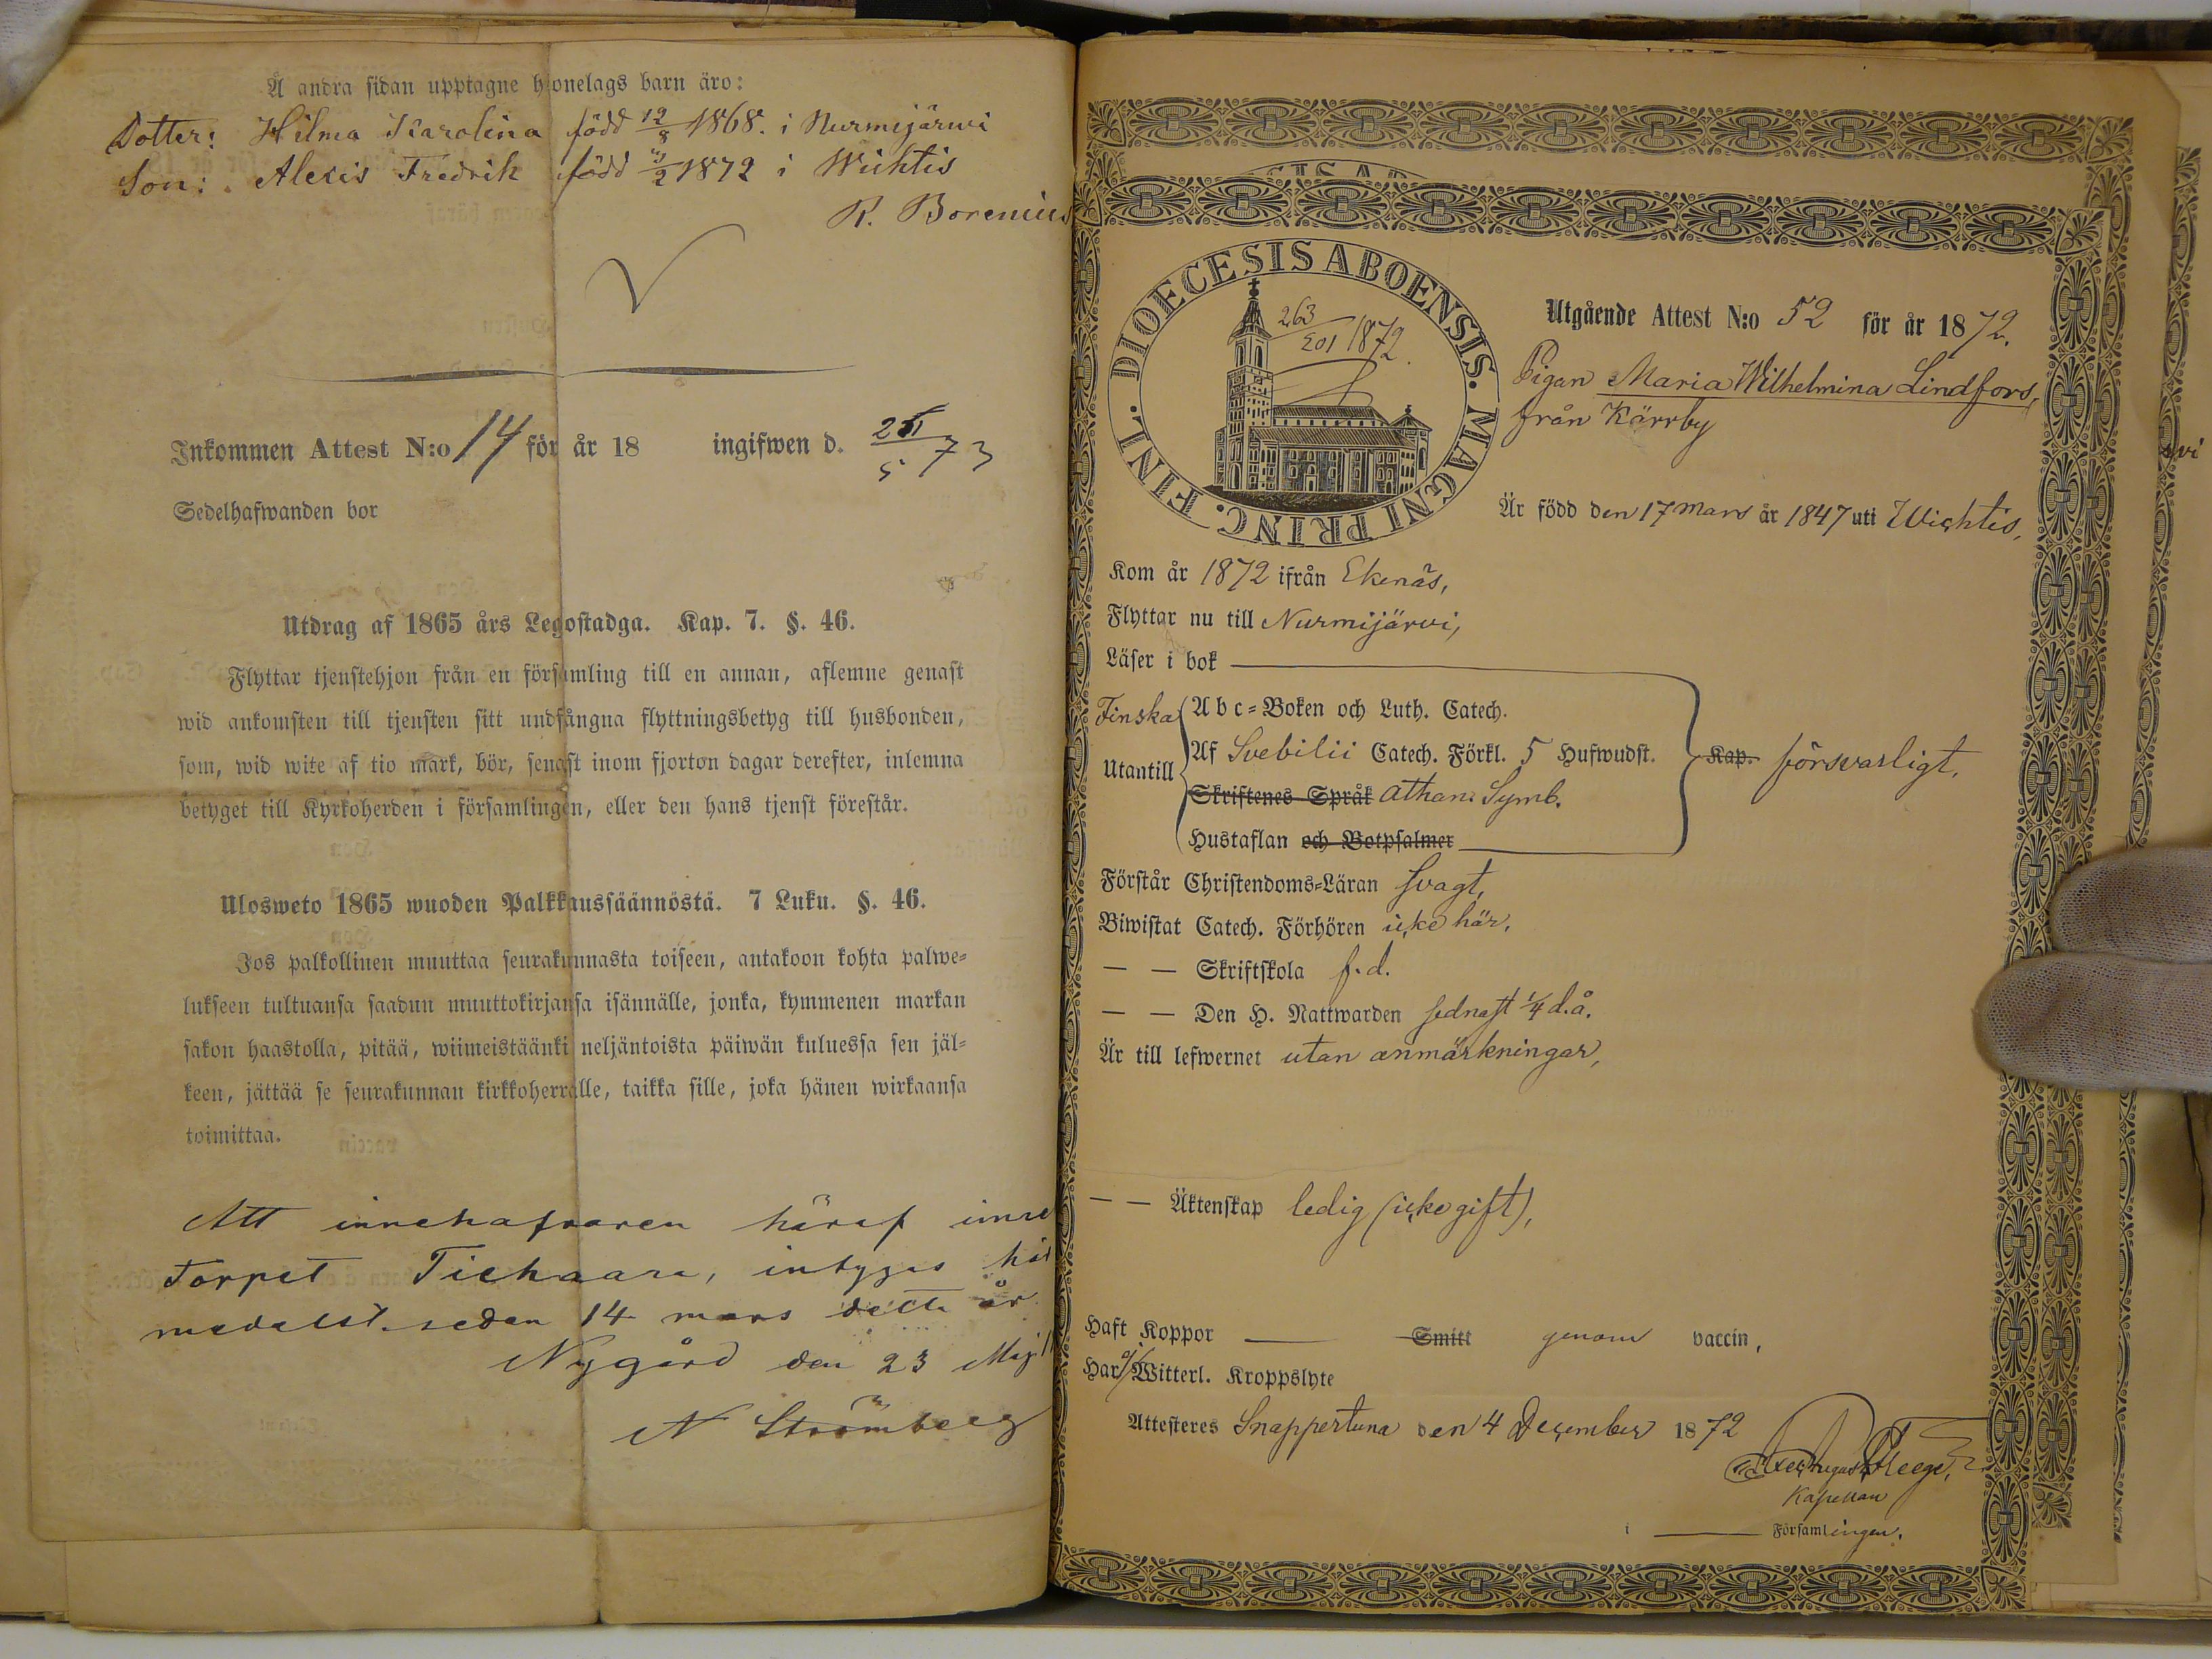 Å andra sidan upptagne hjonelags barn äro:
Dotter: Hilma Karolina född 12/8 1868. i Nurmijärwi
Son: Alexis Fredrik född /2 1872 i Wichtis
R. Borenius
Inkommen Attest N:o 14 för år 18 ingifwen d. 5 73
Sedelhafwanden bor
Utdrag af 1865 års Legostadga. Kap. 7. §. 46.
Flyttar tjenstehjon från en församling till en annan, aflemne genast
wid ankomsten till tjensten sitt undfångna flyttningsbetyg till husbonden,
som, wid wite af tio mark, bör, senast inom fjorton dagar derefter, inlemna
betyget till Kyrkoherden i församlingen, eller den hans tjenst förestår.
Ulosweto 1865 wuoden Palkkaussäännöstä. 7 Luku. §. 46.
Jos palkollinen muuttaa seurakunnasta toiseen, antakoon kohta palwe-
lukseen tultuansa saadun muuttokirjansa isännälle, jonka, kymmenen markan
sakon haastolla, pitää, wiimeistäänki neljäntoista päiwän kuluessa sen jäl-
keen, jättää se seurakunnan kirkkoherralle, taikka sille, joka hänen wirkaansa
toimittaa.
Att innehafvaren häraf inne
Torpet Tiehaara, intygas här
medelst. sedan 14 mars detta år
Nygård den 23 Maj
N Strömberg
DIOECESIS ABOENSIS. MAGNI PRINC. FINL.
263
201 1872.
Utgående Attest N:o 52 för år 1872.
Pigan Maria Wilhelmina Lindfors,
från Kärrby
Är född den 17 Mars år 1847 uti Wichtis,
Kom år 1872 ifrån Ekenäs,
Flyttar nu till Nurmijärvi,
Läser i bok
Finska
Utantill
Abc-Boken och Luth. Catech.
Af Svebilii Catech. Förkl. 5 Hufwudst.
Skriftenes Språk Athan. Symb.
Hustaflan och Botpsalmer
Kap. försvarligt,
Förstår Christendoms-Läran svagt,
Biwistat Catech. Förhören icke här,
— — Skriftskola f.d.
— — Den H. Nattwarden sednast 1/4 d.å.
Är till lefwernet utan anmärkningar,
— — Äktenskap ledig (icke gift),
Haft Koppor Smitt genom vaccin,
Har Witterl. Kroppslyte
Attesteres Snappertuna den 4 December 1872
Kapellan
i Församlingen.